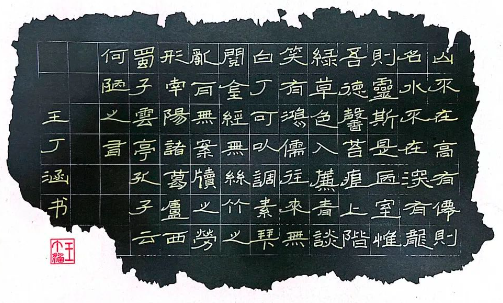 山不在高有僊則
名水不在深有龍
則靈斯是陋室惟
吾德馨苔痕上階
綠草色入簾青談
笑有鴻儒往來無
白丁可以調素琴
閱金經無絲竹之
亂耳無案牘之勞
形南陽諸葛廬西
蜀子雲亭孔子云
何陋之有
王丁涵书